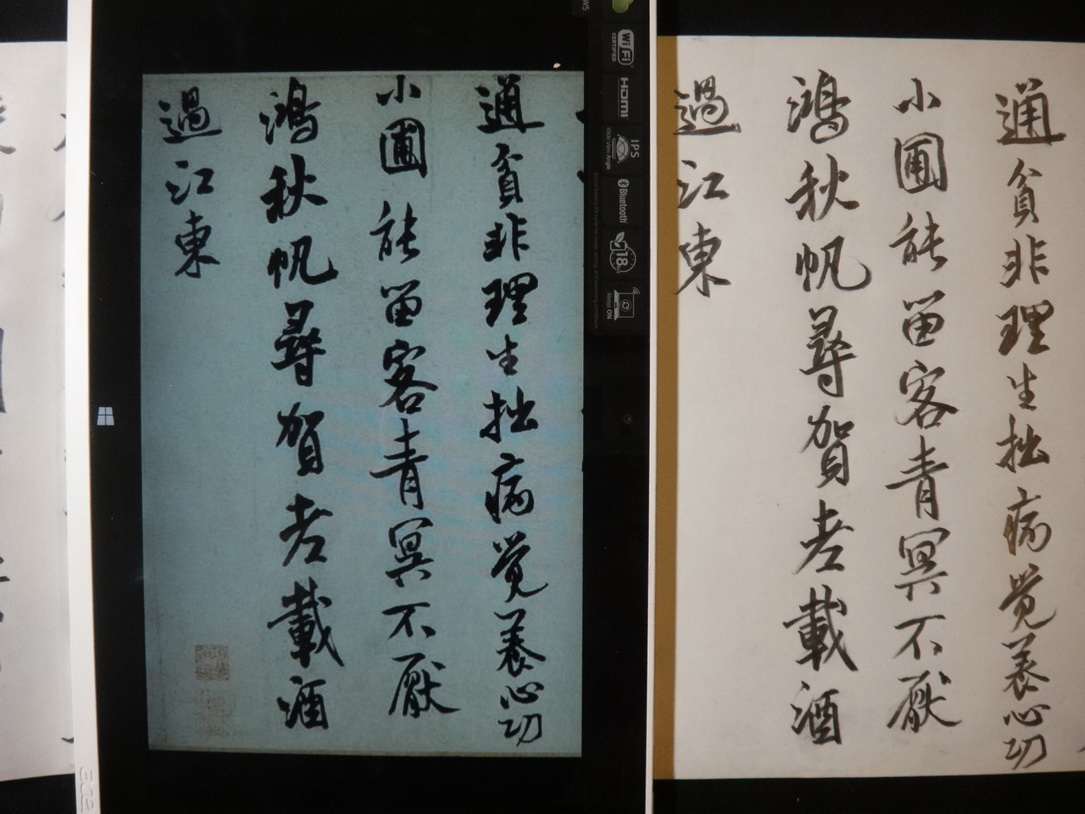 通貧非理生拙病覺養心功
小圃能留客青冥不厭
鴻秋帆尋賀老載酒
過江東
Wi Fi
CERTIFIED
HDMI
IPS
Bluetooth
18
通貧非理生拙病覺養心功
小圃能留客青冥不厭
鴻秋帆尋賀老載酒
過江東